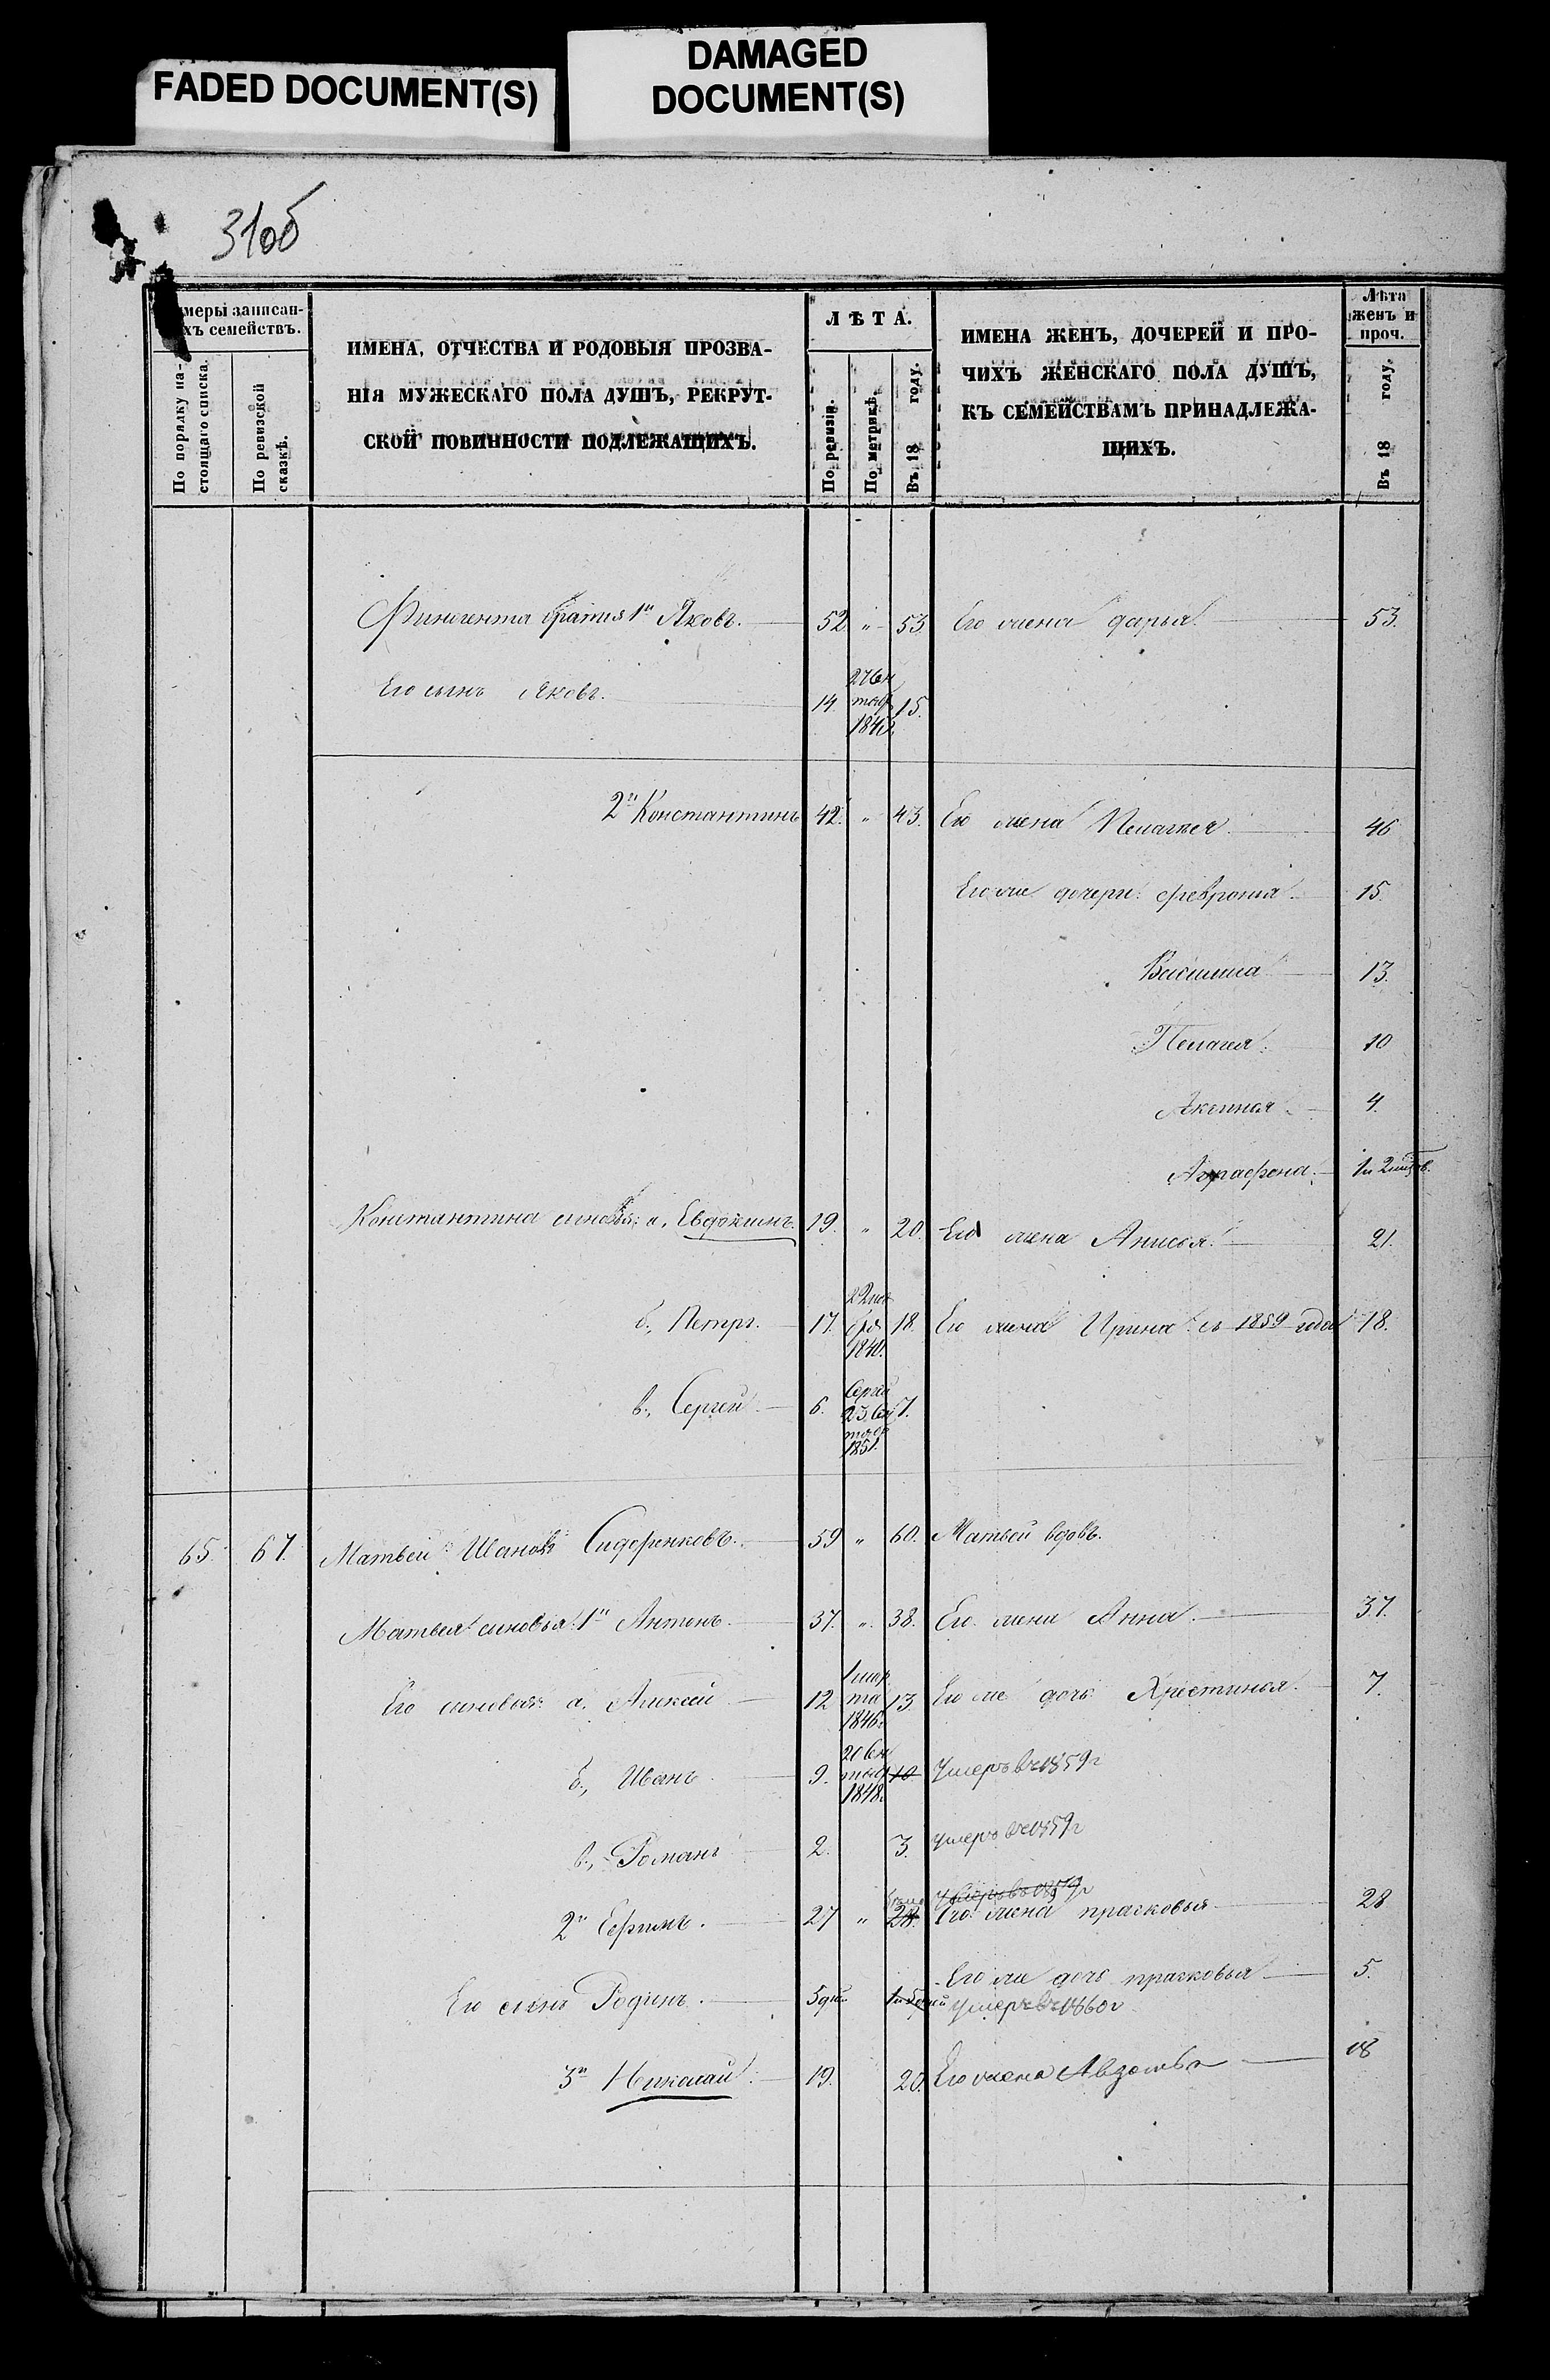 FADED DOCUMENT(S)
DAMAGED
DOCUMENT(S)
31об
меры записан-
хъ семействъ.
По порядку на-
стоящаго списка.
По ревизской
сказкѣ.
ИМЕНА, ОТЧЕСТВА И РОДОВЫЯ ПРОЗВА-
НІЯ МУЖЕСКАГО ПОЛА ДУШЪ, РЕКРУТ-
СКОЙ ПОВИННОСТИ ПОДЛЕЖАЩИХЪ.
ЛѢТА.
По ревизіи.
По метрикѣ.
Въ 18 году.
ИМЕНА ЖЕНЪ, ДОЧЕРЕЙ И ПРО-
ЧИХЪ ЖЕНСКАГО ПОЛА ДУШЪ,
КЪ СЕМЕЙСТВАМЪ ПРИНАДЛЕЖА-
ЩИХЪ.
Лѣта
женъ и
проч.
Въ 18 году.
Финогента братья 1й Яковъ. 52 " 53. Его жена дарья. 53.
Его сынъ Яковъ. 14 15.
2й Константинъ 42. " 43. Его жена Пелагея. 46
Его же дочери: Феврония. 15.
13.
Пелагея. 10
4.
Аграфена. 1 и 2 мѣс.
Константина сыновья: а, Евдокимъ. 19. " 20. Его жена Анисья. 21.
б, Петръ. 17. 1840. 18. Его жена Ирина съ 1859 года 18.
в, Сергей. 6. Сергѣй 23 1851. 7.
65. 67. Матвей Ивановъ Сидоренковъ. 59 " 60. Матвей вдовъ.
Матвея сыновья: 1й Антонъ. 37. " 38. Его жена Анна. 37.
Его сыновья: а, Алексей 12 1 мар
та
1846. 13. Его же дочь Христинья. 7.
б, Иванъ 9. 1848. 10. Умеръ въ 1859 г
в, Романъ 2. 3. умеръ въ 1859 г
умеръ въ 1859 г
2й Ефимъ. 27 " 28. Его жена прасковья 28
Его же дочь прасковья 5.
Его сынъ Родіонъ. 5 дней умеръ въ 1860 г
3й Николай. 19. 20. Его жена 18